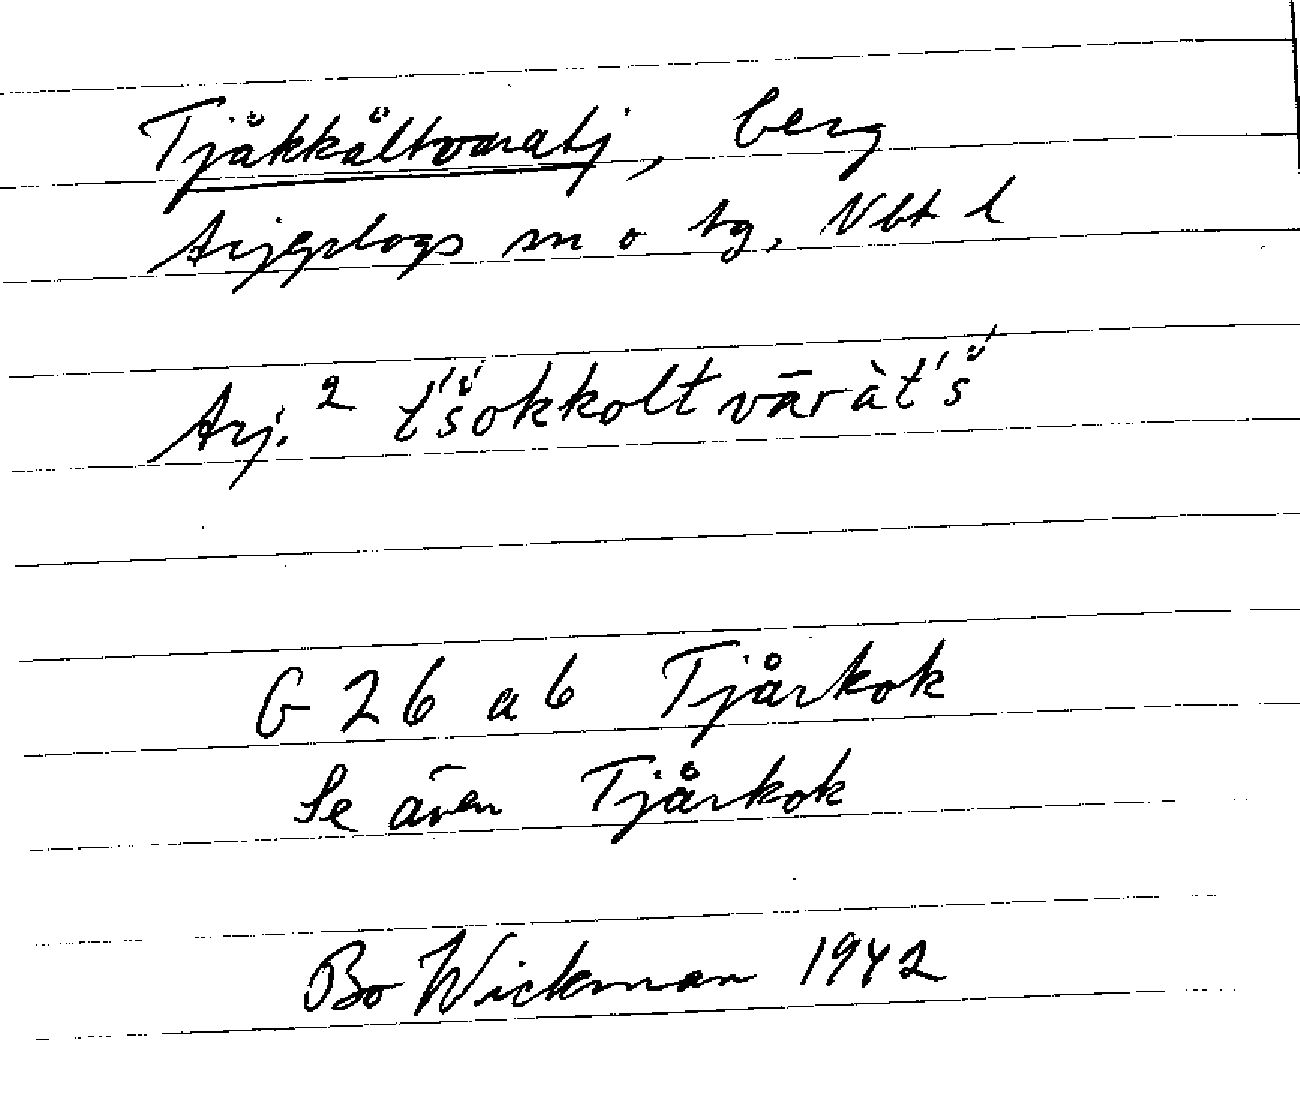 Tjåkkåltvaratj, berg
Arjeplogs sn o tg, Vbt l
Arj. 2 t́š́okkoltvāràt́š́
G 26 a b Tjårkok
Se även Tjårkok
Bo Wickman 1942